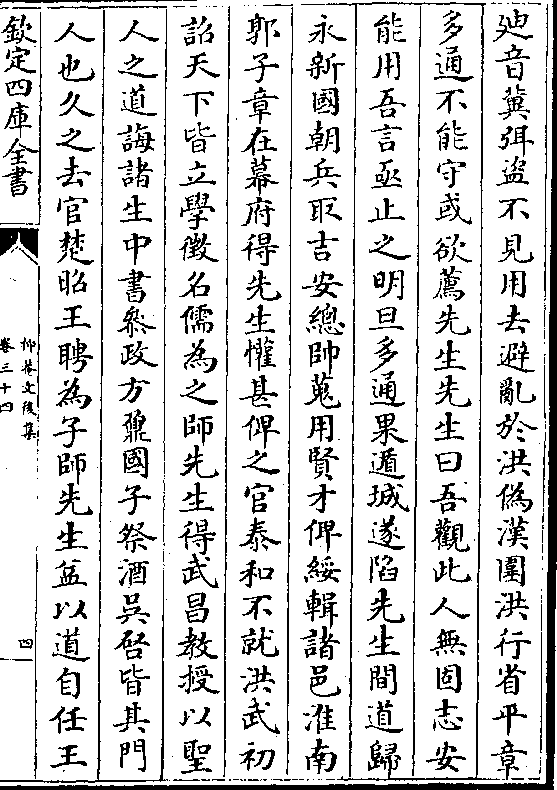 廸音冀弭盗不見用去避亂於洪偽漢圍洪行省平章
多通不能守或欲薦先生先生曰吾觀此人無固志安
能用吾言亟止之明旦多通果遁城遂陷先生間道歸
永新國朝兵取吉安總帥蒐用賢才俾綏輯諸邑淮南
郭子章在幕府得先生懽甚俾之官泰和不就洪武初
詔天下皆立學徴名儒為之師先生得武昌教授以聖
人之道誨諸生中書叅政方鼐國子祭酒吳啓皆其門
人也久之去官楚昭王聘為子師先生益以道自任王
欽定四庫全書
抑菴文後集
卷三十四
四